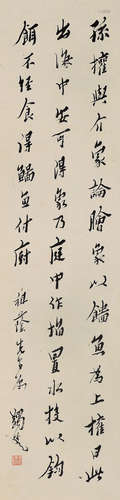 孫權與介象論膾象以鯔魚為上權曰此
出海中安可得象乃庭中作埳置水投以鈎
餌不食得鯔魚付廚
先生屬